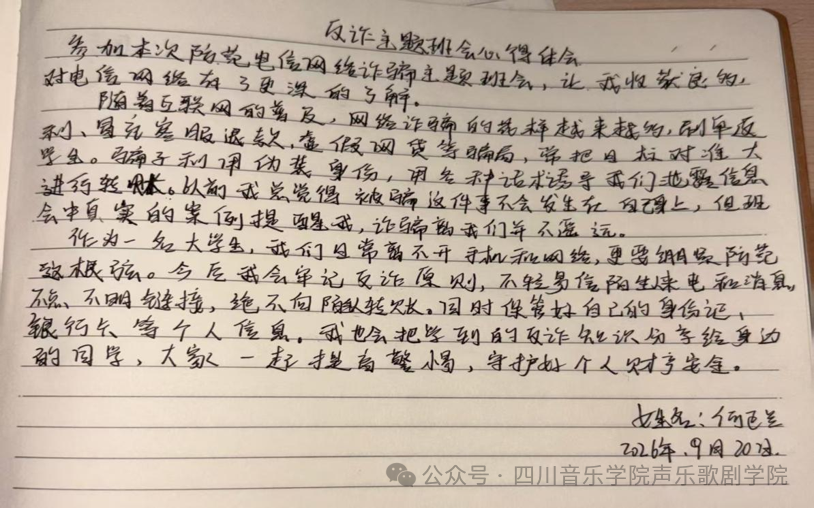 反诈主题班会心得体会
参加本次防范电信网络诈骗主题班会，让我收获良多，
对电信网络有了更深的了解。
随着互联网的普及，网络诈骗的花样越来越多，刷单返
利、冒充客服退款、虚假网贷等骗局，常把目标对准大
学生。骗子利用伪装身份，用各种话术诱导我们泄露信息
进行转账。以前我总觉得被骗这件事不会发生在自己身上，但班
会中真实的案例提醒我，诈骗离我们并不遥远。
作为一名大学生，我们日常离不开手机和网络，更要绷紧防范
这根弦。今后我会牢记反诈原则，不轻易信陌生来电和消息，
不点不明链接，绝不向陌生人转账。同时保管好自己的身份证、
银行卡等个人信息。我也会把学到的反诈知识分享给身边
的同学，大家一起提高警惕，守护好个人财产安全。
姓名：何
2026年.9月20日.
公众号·四川音乐学院声乐歌剧学院